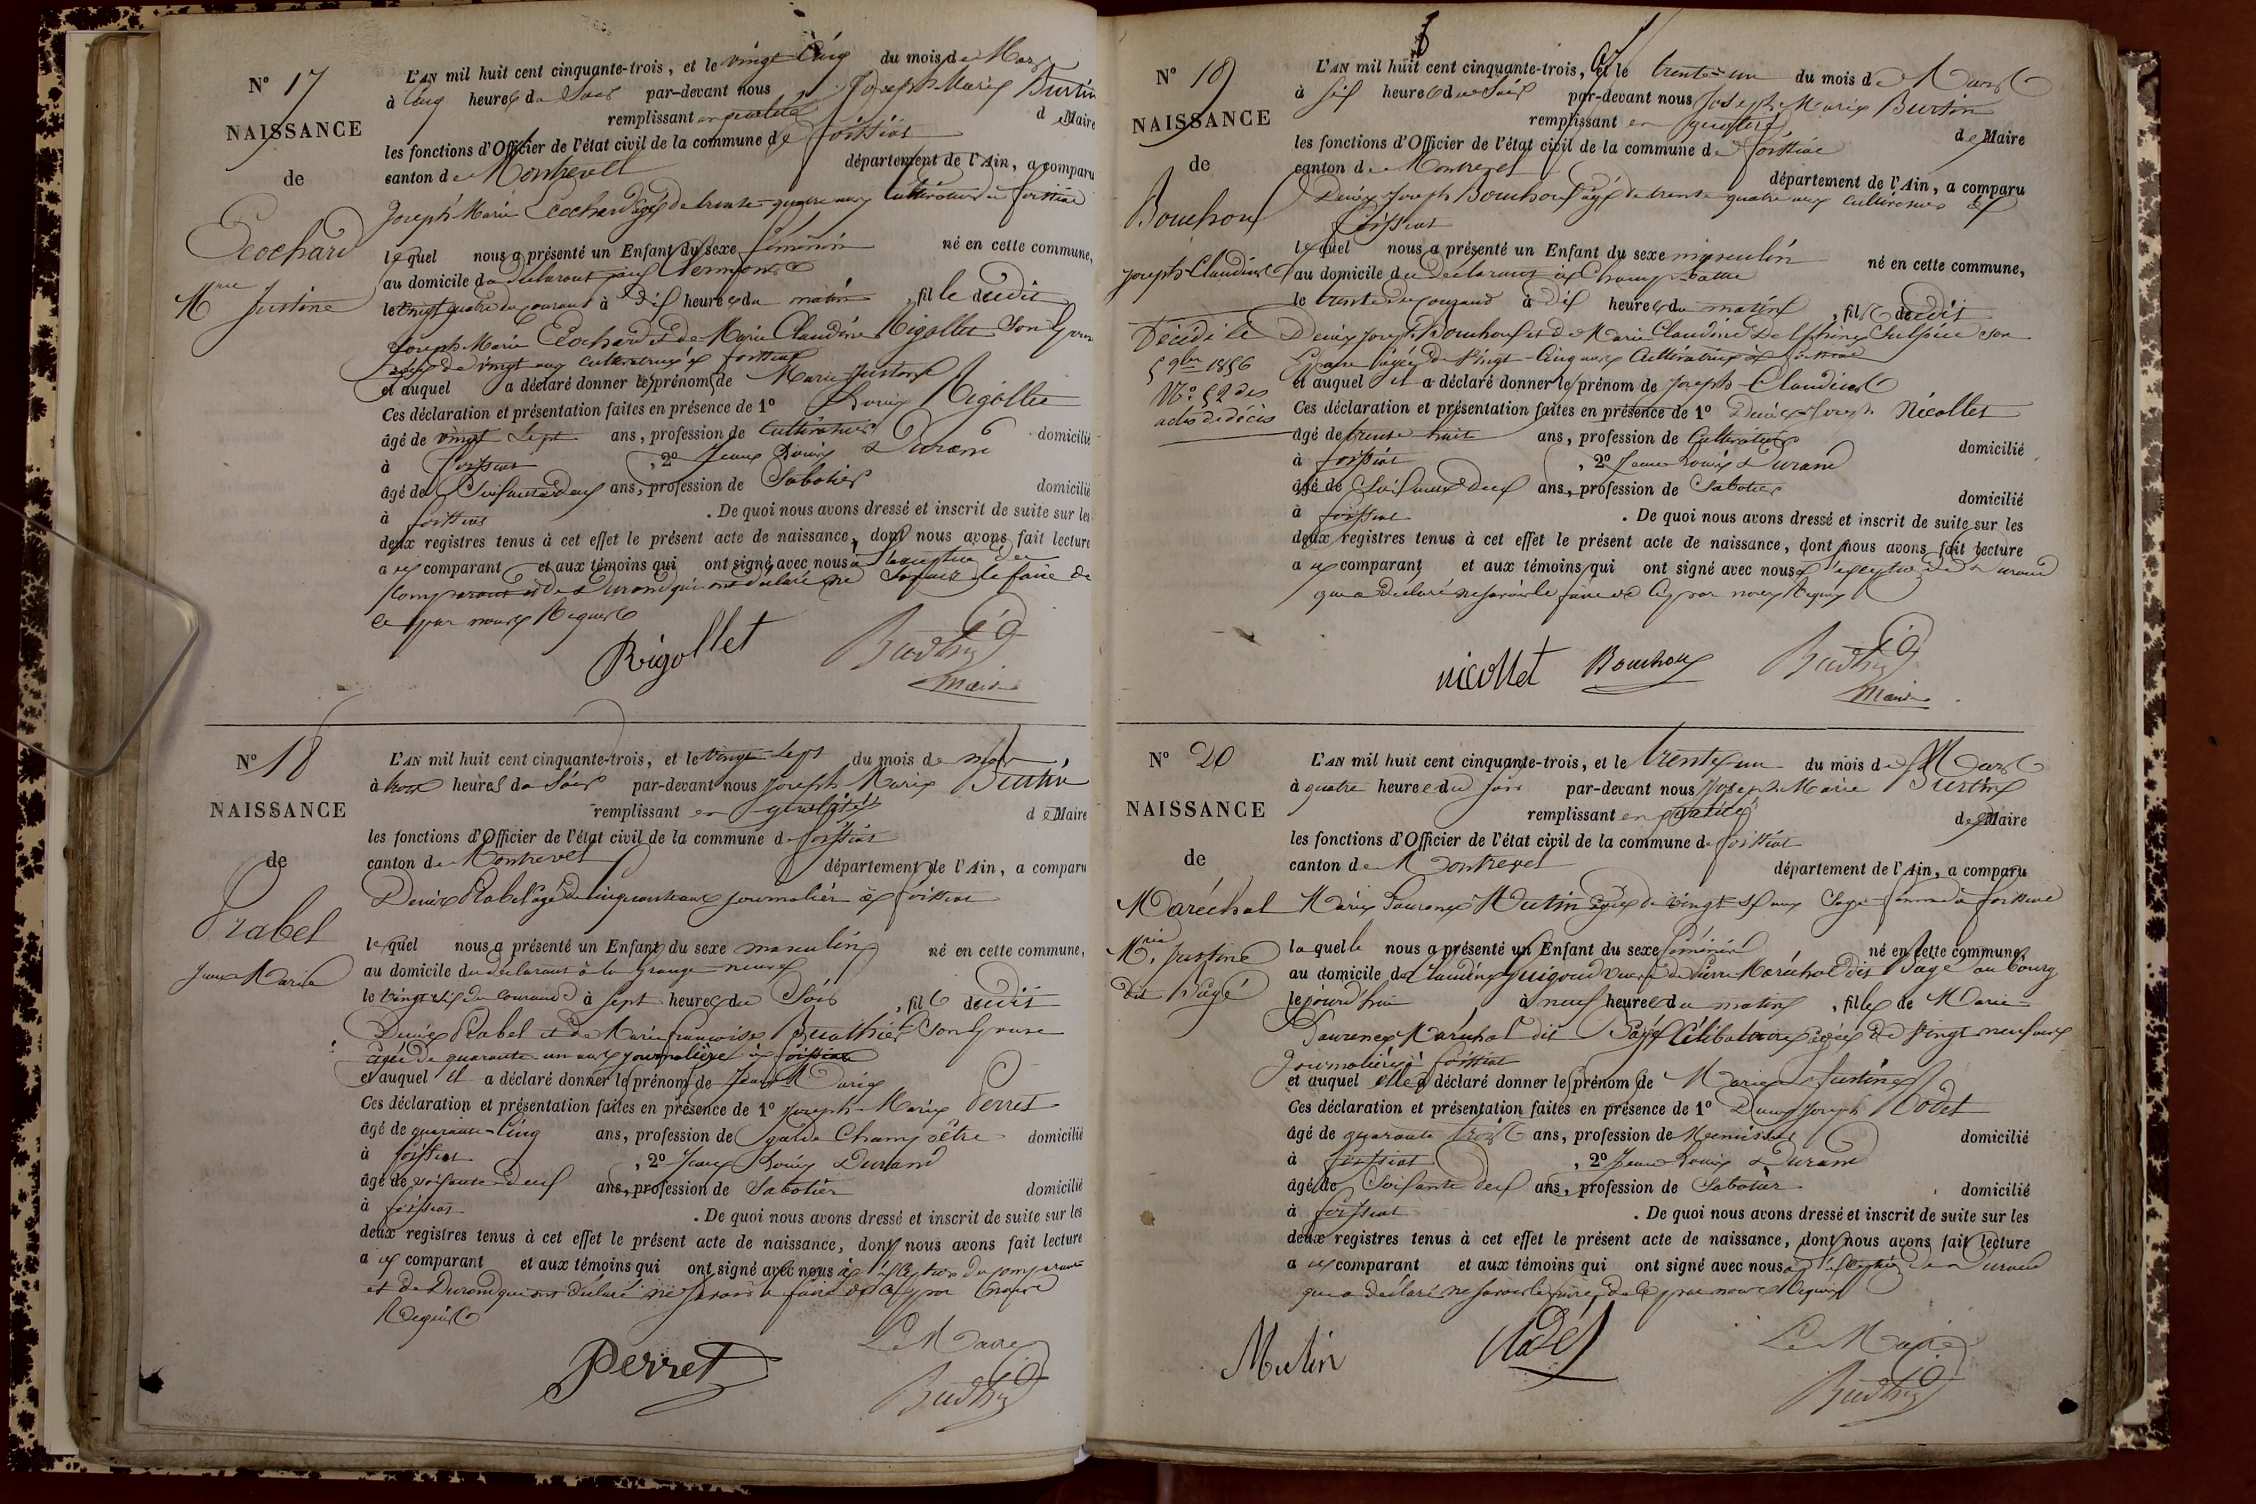 N° 17
NAISSANCE
de
Ecochard
Mie Justine
L'AN mil huit cent cinquante-trois, et le vingt Cinq du mois de Mars
à Cinq heures du Soir par-devant nous Joseph Marie Burtin
remplissant en qualité de Maire
les fonctions d'Officier de l'état civil de la commune de foissiat
canton de Montrevel département de l'Ain, a comparu
Joseph Marie Ecochard âgé de trente-quatre ans Cultivateur à foissiat
lequel nous a présenté un Enfant du sexe féminin né en cette commune,
au domicile du déclarant
le vingt quatre du courant à dix heures du matin, fille dudit
Joseph Marie Ecochard et de Marie Claudine Rigollet son Epouse
âgée de vingt ans cultivatrice à foissiat
et auquel a déclaré donner les prénoms de Marie Justine
Ces déclaration et présentation faites en présence de 1° Louis Rigollet
âgé de vingt Sept ans, profession de Cultivateur domicilié
à foissiat, 2° Jean Louis Durand
âgé de Soixante deux ans, profession de Sabotier domicilié
à foissiat. De quoi nous avons dressé et inscrit de suite sur les
deux registres tenus à cet effet le présent acte de naissance, dont nous avons fait lecture
aux comparant et aux témoins qui ont signé avec nous à l'exception du
Comparant et de Durand qui ont déclaré ne Savoir le faire de
ce par nous Requis
Rigollet Burtin
Maire
N° 18
NAISSANCE
de
Rabel
Jean Marie
L'AN mil huit cent cinquante-trois, et le vingt-Sept du mois de mars
à trois heures du Soir par-devant nous Joseph Marie Burtin
remplissant en qualité de Maire
les fonctions d'Officier de l'état civil de la commune de foissiat
canton de Montrevel département de l'Ain, a comparu
Denis Rabel âgé de cinquante ans journalier à foissiat
lequel nous a présenté un Enfant du sexe masculin né en cette commune,
au domicile du déclarant à la Grange neuve
le vingt six du courant à Sept heures du Soir, fils dudit
Denis Rabel et de Marie françoise Beauthier Son Epouse
âgée de quarante un ans journalière à foissiat
et auquel il a déclaré donner les prénoms de Jean Marie
Ces déclaration et présentation faites en présence de 1° Joseph Marie Perret
âgé de quarante-Cinq ans, profession de garde Champêtre domicilié
à foissiat, 2° Jean Louis Durand
âgé de soixante deux ans, profession de Sabotier domicilié
à foissiat. De quoi nous avons dressé et inscrit de suite sur les
deux registres tenus à cet effet le présent acte de naissance, dont nous avons fait lecture
aux comparant et aux témoins qui ont signé avec nous à l'exception du comparant
et de Durand qui ont déclaré ne Savoir le faire de ce par nous
Requis
Le Maire
Perret Burtin
N° 19
NAISSANCE
de
Bouchoux
Joseph Claudius
Décédé le
5 9bre 1856
N° 52 des
actes de décès
L'AN mil huit cent cinquante-trois, et le trente-un du mois de Mars
à six heures du Soir par-devant nous Joseph Marie Burtin
remplissant en qualité de Maire
les fonctions d'Officier de l'état civil de la commune de foissiat
canton de Montrevel département de l'Ain, a comparu
Denis Joseph Bouchoux âgé de trente quatre ans Cultivateur à
foissiat
lequel nous a présenté un Enfant du sexe masculin né en cette commune,
au domicile du déclarant
le trente du courant à dix heures du matin, fils dudit
Denis Joseph Bouchoux et de Marie Claudine Delphine Sulpice son
Epouse âgée de Vingt-Cinq ans Cultivatrice à foissiat
et auquel il a déclaré donner le prénom de Joseph-Claudius
Ces déclaration et présentation faites en présence de 1° Denis Joseph Nicollet
âgé de trente huit ans, profession de Cultivateur domicilié
à foissiat, 2° Jean Louis Durand
âgé de Soixante deux ans, profession de Sabotier domicilié
à foissiat. De quoi nous avons dressé et inscrit de suite sur les
deux registres tenus à cet effet le présent acte de naissance, dont nous avons fait lecture
aux comparant et aux témoins qui ont signé avec nous à l'exception de Durand
qui a déclaré ne savoir le faire de ce par nous Requis
nicollet Bouchoux Burtin
Maire
N° 20
NAISSANCE
de
Maréchal
Mie Justine
dit Pagé
L'AN mil huit cent cinquante-trois, et le trente un du mois de Mars
à quatre heures du soir par-devant nous Joseph Marie Burtin
remplissant en qualité de Maire
les fonctions d'Officier de l'état civil de la commune de foissiat
canton de Montrevel département de l'Ain, a comparu
Marie Laurence Mutin âgée de vingt six ans Sage-femme à foissiat
laquelle nous a présenté un Enfant du sexe féminin né en cette commune,
au domicile de Claudine Guigoud veuve de Pierre Maréchal dit Pagé au bourg
le jourd'hui à neuf heures du matin, fille de Marie
Laurence Maréchal dit Pagé Célibataire âgée de Vingt neuf ans
Journalière à foissiat
et auquel elle a déclaré donner les prénoms de Marie Justine
Ces déclaration et présentation faites en présence de 1° Denis Joseph Rodet
âgé de quarante trois ans, profession de Menuisier domicilié
à foissiat, 2° Jean Louis Durand
âgé de Soixante deux ans, profession de Sabotier domicilié
à foissiat. De quoi nous avons dressé et inscrit de suite sur les
deux registres tenus à cet effet le présent acte de naissance, dont nous avons fait lecture
aux comparant et aux témoins qui ont signé avec nous à l'exception de Durand
qui a déclaré ne savoir le faire de ce par nous Requis
Le Maire
Mutin Rodet Burtin